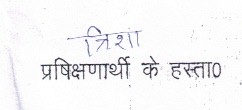 त्रिशा
प्रषिक्षणार्थी के हस्ता0